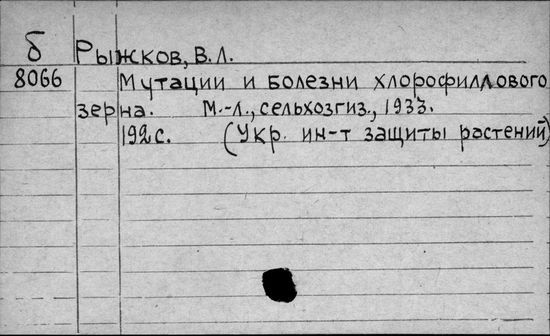 б Рыжков, В.Л.
8066 Мутации и болезни хлорофиллового
зерна. М.-Л., сельхозгиз., 1933.
192 с. (Укр. ин-т защиты растений)